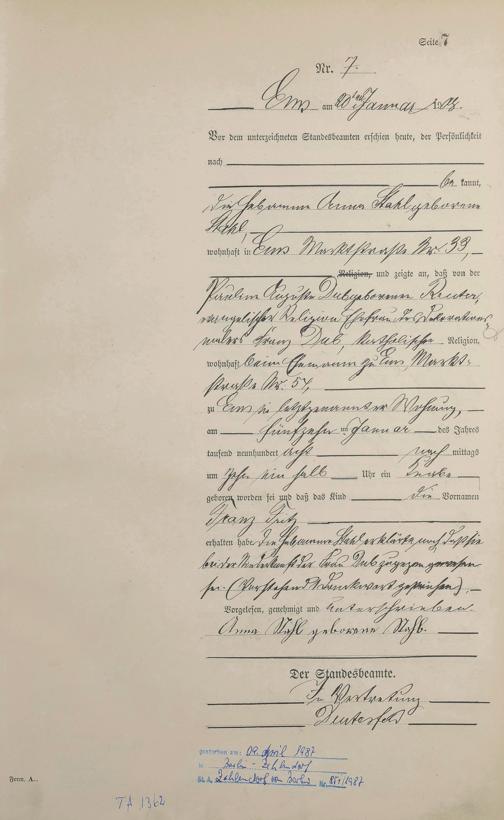 Seite 7
Nr. 7.
Ems am 20ten Januar 1908.
Vor dem unterzeichneten Standesbeamten erschien heute, der Persönlichkeit
nach
be kannt,
die Hebamme Anna Stahl geborene
Stahl,
wohnhaft in Ems Marktstraße Nr. 33,
Religion, und zeigte an, daß von der
Pauline Auguste Dub geborenen
evangelischer Religion Ehefrau des Dekorations
malers Franz Dub, katholischer Religion,
wohnhaft beim Ehemann zu Ems, Markt-
straße Nr. 57,
zu Ems in letztgenannter Wohnung,
am fünfzehnten Januar des Jahres
tausend neunhundert acht nach mittags
um zehn ein halb Uhr ein Knabe
geboren worden sei und daß das Kind die Vornamen
Franz Fritz
erhalten habe. Die Hebamme Stahl erklärte, noch daß sie
bei der Niederkunft der Frau Dub zugegen gewesen
sei. (Vorstehend 1 Druckwort gestrichen).
Vorgelesen, genehmigt und unterschrieben.
Anna Stahl geborene Stahl.
Der Standesbeamte.
In Vertretung
gestorben am: 09. April 1987
in Berlin-Zehlendorf
St. A. Zehlendorf von Berlin Nr. 851/1987
Form. A.
TA 1362